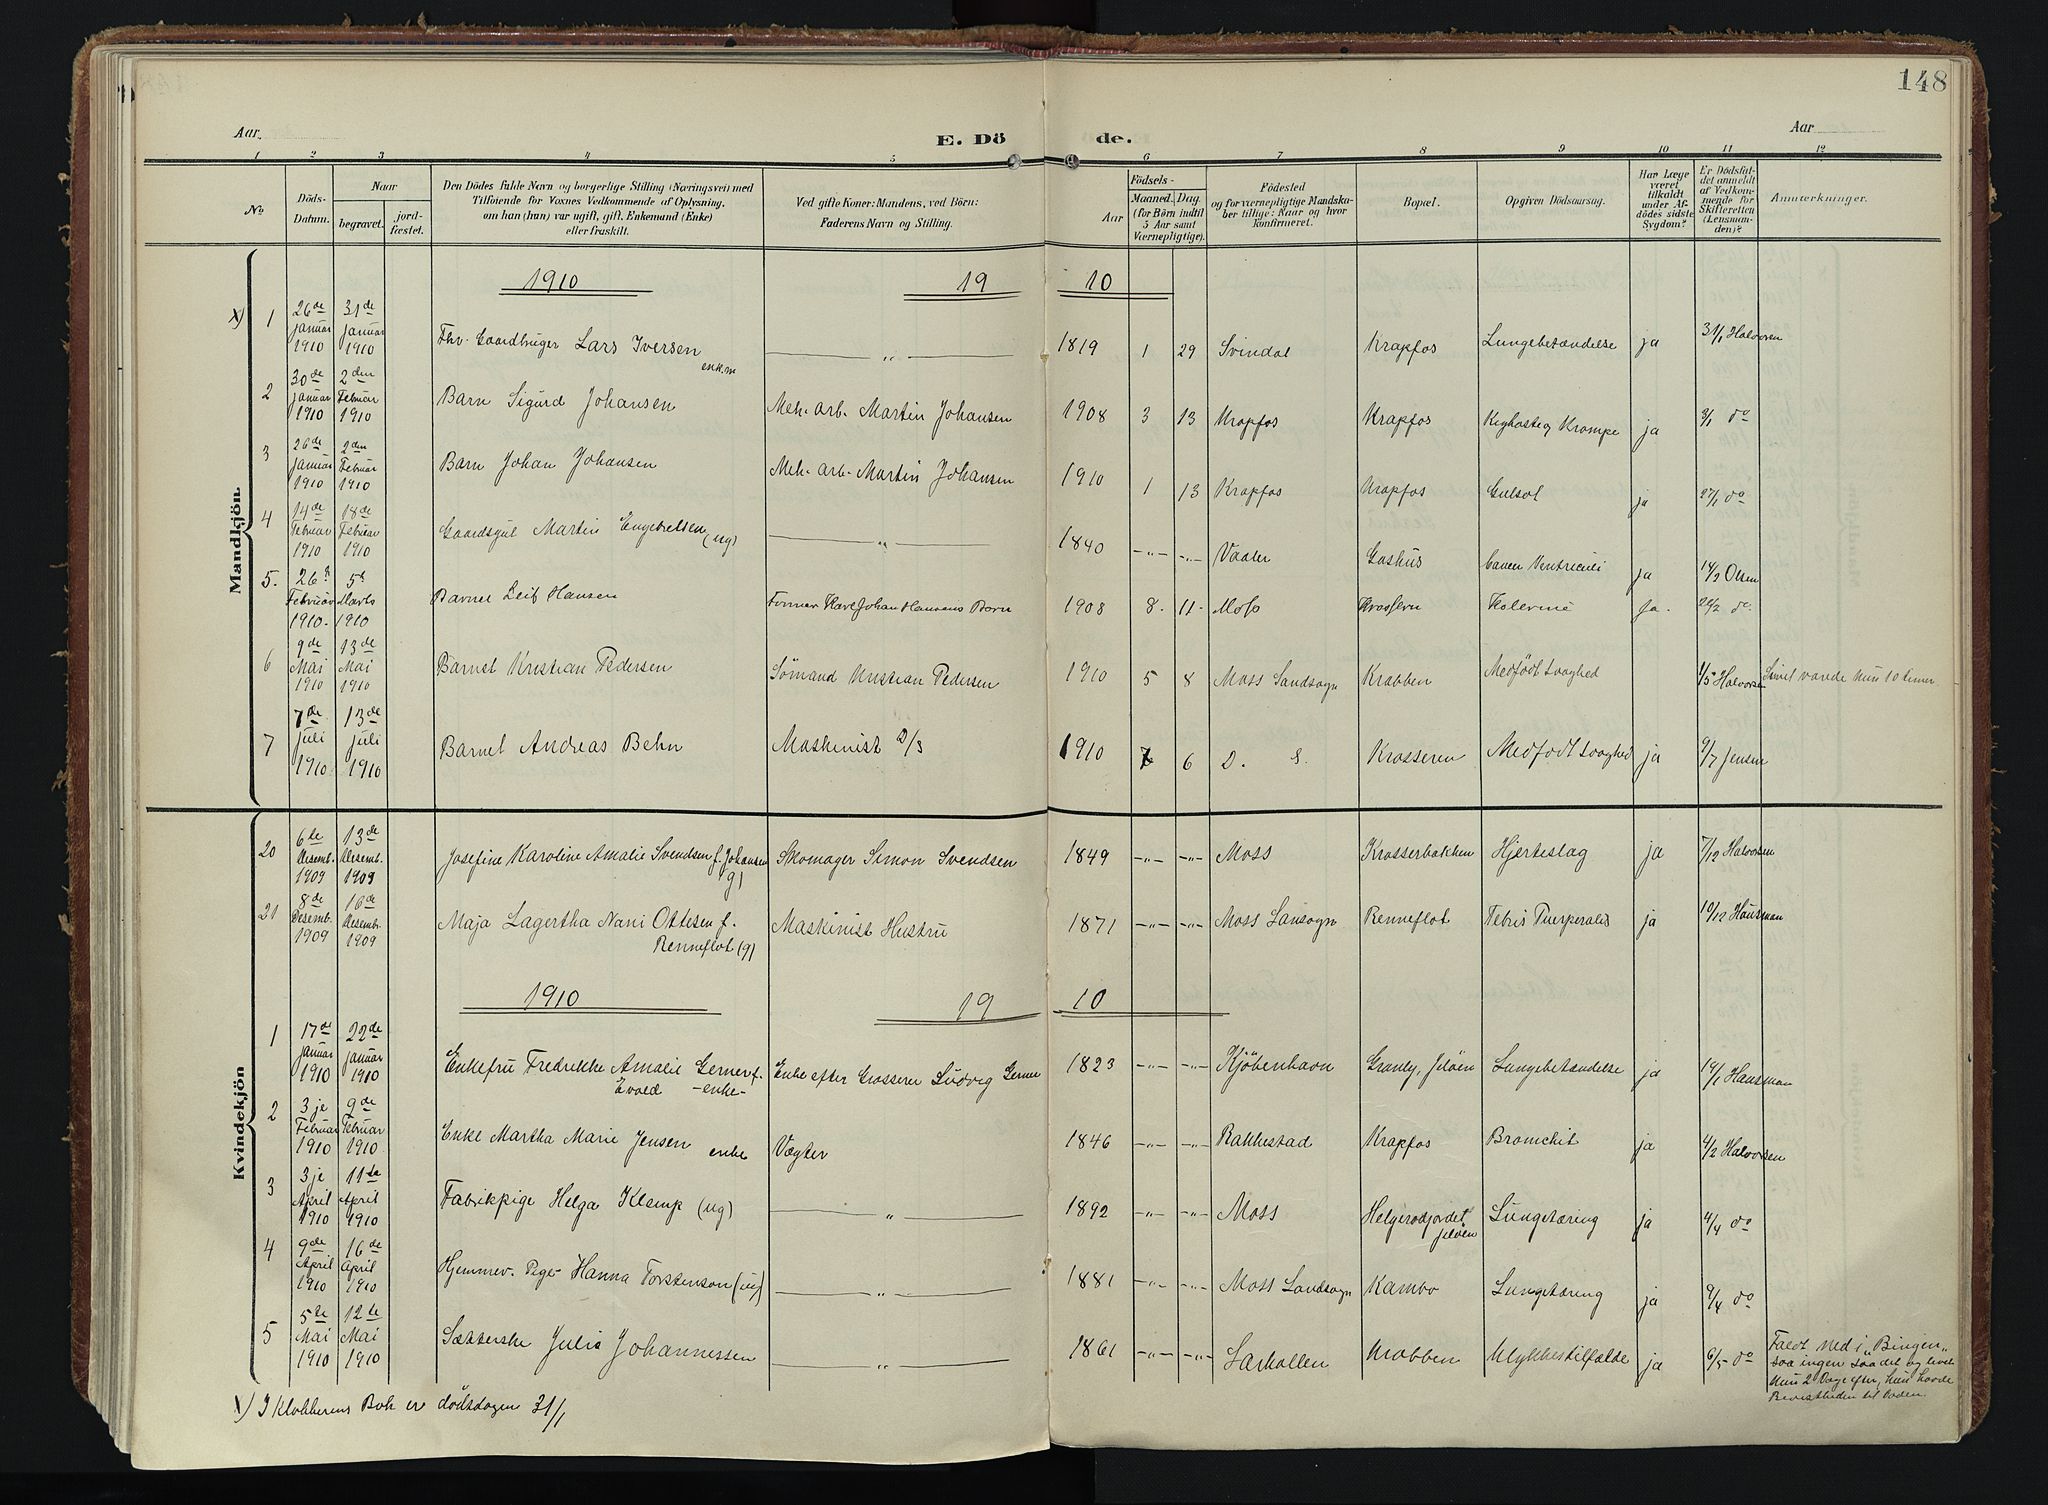 148
Aar
E. Dö de.
Aar
1 2 3 4 5 6 7 8 9 10 11 12
No
Döds-Datum.
Naar
begravet.
jord-fæstet.
Den Dödes fulde Navn og borgerlige Stilling (Næringsvei) med
Tilföiende for Voxnes Vedkommende af Oplysning,
om han (hun) var ugift, gift, Enkemand (Enke)
eller fraskilt.
Ved gifte Koner: Mandens, ved Börn:
Faderens Navn og Stilling.
Födsels-
Aar
Maaned. Dag.
(for Börn indtil
5 Aar samt
Værnepligtige).
Födested
og for værnepligtige Mandska-
ber tillige: Naar og hvor
konfirmeret.
Bopæl.
Opgiven Dödsaarsag.
Har Læge
været
tilkaldt
under Af-
dödes sidste
Sygdom?
Er Dödsfal-
det anmeldt
af Vedkom-
mende for
Skifteretten
(Lensman-
den)?
Anmærkninger.
Mandkjön.
1910 19 10
X) 1 26de Januar 1910 31de Januar 1910 Fhv. Gaardbruger Lars Iversen enk.m — „ — 1819 1 29 Svindal Krapfos Lungebetændelse ja 31/1 Halvorsen
2 30de Januar 1910 2den Februar 1910 Barn Sigurd Johansen Mek. arb. Martin Johansen 1908 3 13 Krapfos Krapfos Kighoste og Krampe ja 3/1 do
3 26de Januar 1910 2den Februar 1910 Barn Johan Johansen Mek. arb. Martin Johansen 1910 1 13 Krapfos Krapfos Gulsot ja 27/1 do
4 14de Februar 1910 18de Februar 1910 Gaardsgut Martin Engebretsen (ug) — „ — 1840 -„- -„- Vaaler Gashus Cancer Ventriculi ja 14/2 Olsen
5. 26d Februar 1910. 5t Marts 1910 Barnet Leif Hansen Former Karl Johan Hansens Barn 1908 8. 11- Moss Krosseren Kolerine Ja. 26/2 do.
6 9de Mai 1910 13de Mai 1910 Barnet Kristian Pedersen Sömand Kristian Pedersen 1910 5 8 Moss Landsogn Krabben Medfödt svaghed 1/5 Halvorsen Livet varede kun 10 timer
7 7de Juli 1910 13de Juli 1910 Barnet Andreas Behn Maskinist D/S 1910 7 6 D. S. Krosseren Medfödt svaghed ja 9/7 Jensen
Kvindekjön
20 6te Desemb. 1909 13de Desemb. 1909 Josefine Karoline Amalie Svendsen f. Johansen g) Skomager Simon Svendsen 1849 -„- -„- Moss Krosserbakken Hjerteslag ja 7/12 Halvorsen
21 8de Desemb. 1909 16de Desemb. 1909 Maja Lagertha Nani Ottesen f. Renneflot (g) Maskinist Hustru 1871 -„- -„- Moss Lansogn Renneflot Febris Puerperalis ja 10/12 Hausman
1910 19 10
1 17de Januar 1910 22de Januar 1910 Enkefru Fredrikke Amalie Gerner f. Evald -enke- Enke efter Grosserer Ludvig Gerner 1823 -„- -„- Kjöbenhavn Granly, Jelöen Lungebetændelse ja 19/1 Hausman
2 3je Februar 1910 9de Februar 1910 Enke Martha Marie Jensen enke Vægter 1846 -„- -„- Rakkestad Krapfos Bronchit ja 4/2 Halvorsen
3 3je April 1910 11te April 1910 Fabrikpige Helga Klemp (ug) — „ — 1892 -„- -„- Moss Helgerødjordet Jelöen Lungetæring ja 4/4 do
4 9de April 1910 16de April 1910 Hjemmev. Pige Hanna Torstenson (ug) — „ — 1881 -„- -„- Moss Landsogn Kambo Lungetæring ja 9/4 do
5 5te Mai 1910 12te Mai 1910 Sætterske Julie Johannessen — „ — 1861 -„- -„- Larkollen Krabben Ulykkestilfælde ja 6/5 do Faldt ned i „Bingen„
saa ingen saa det og levede
kun 2 Dage efter, hun havde
Bevistheden til Döden.
X) I Klokkerens Bok er dödsdagen 31/1